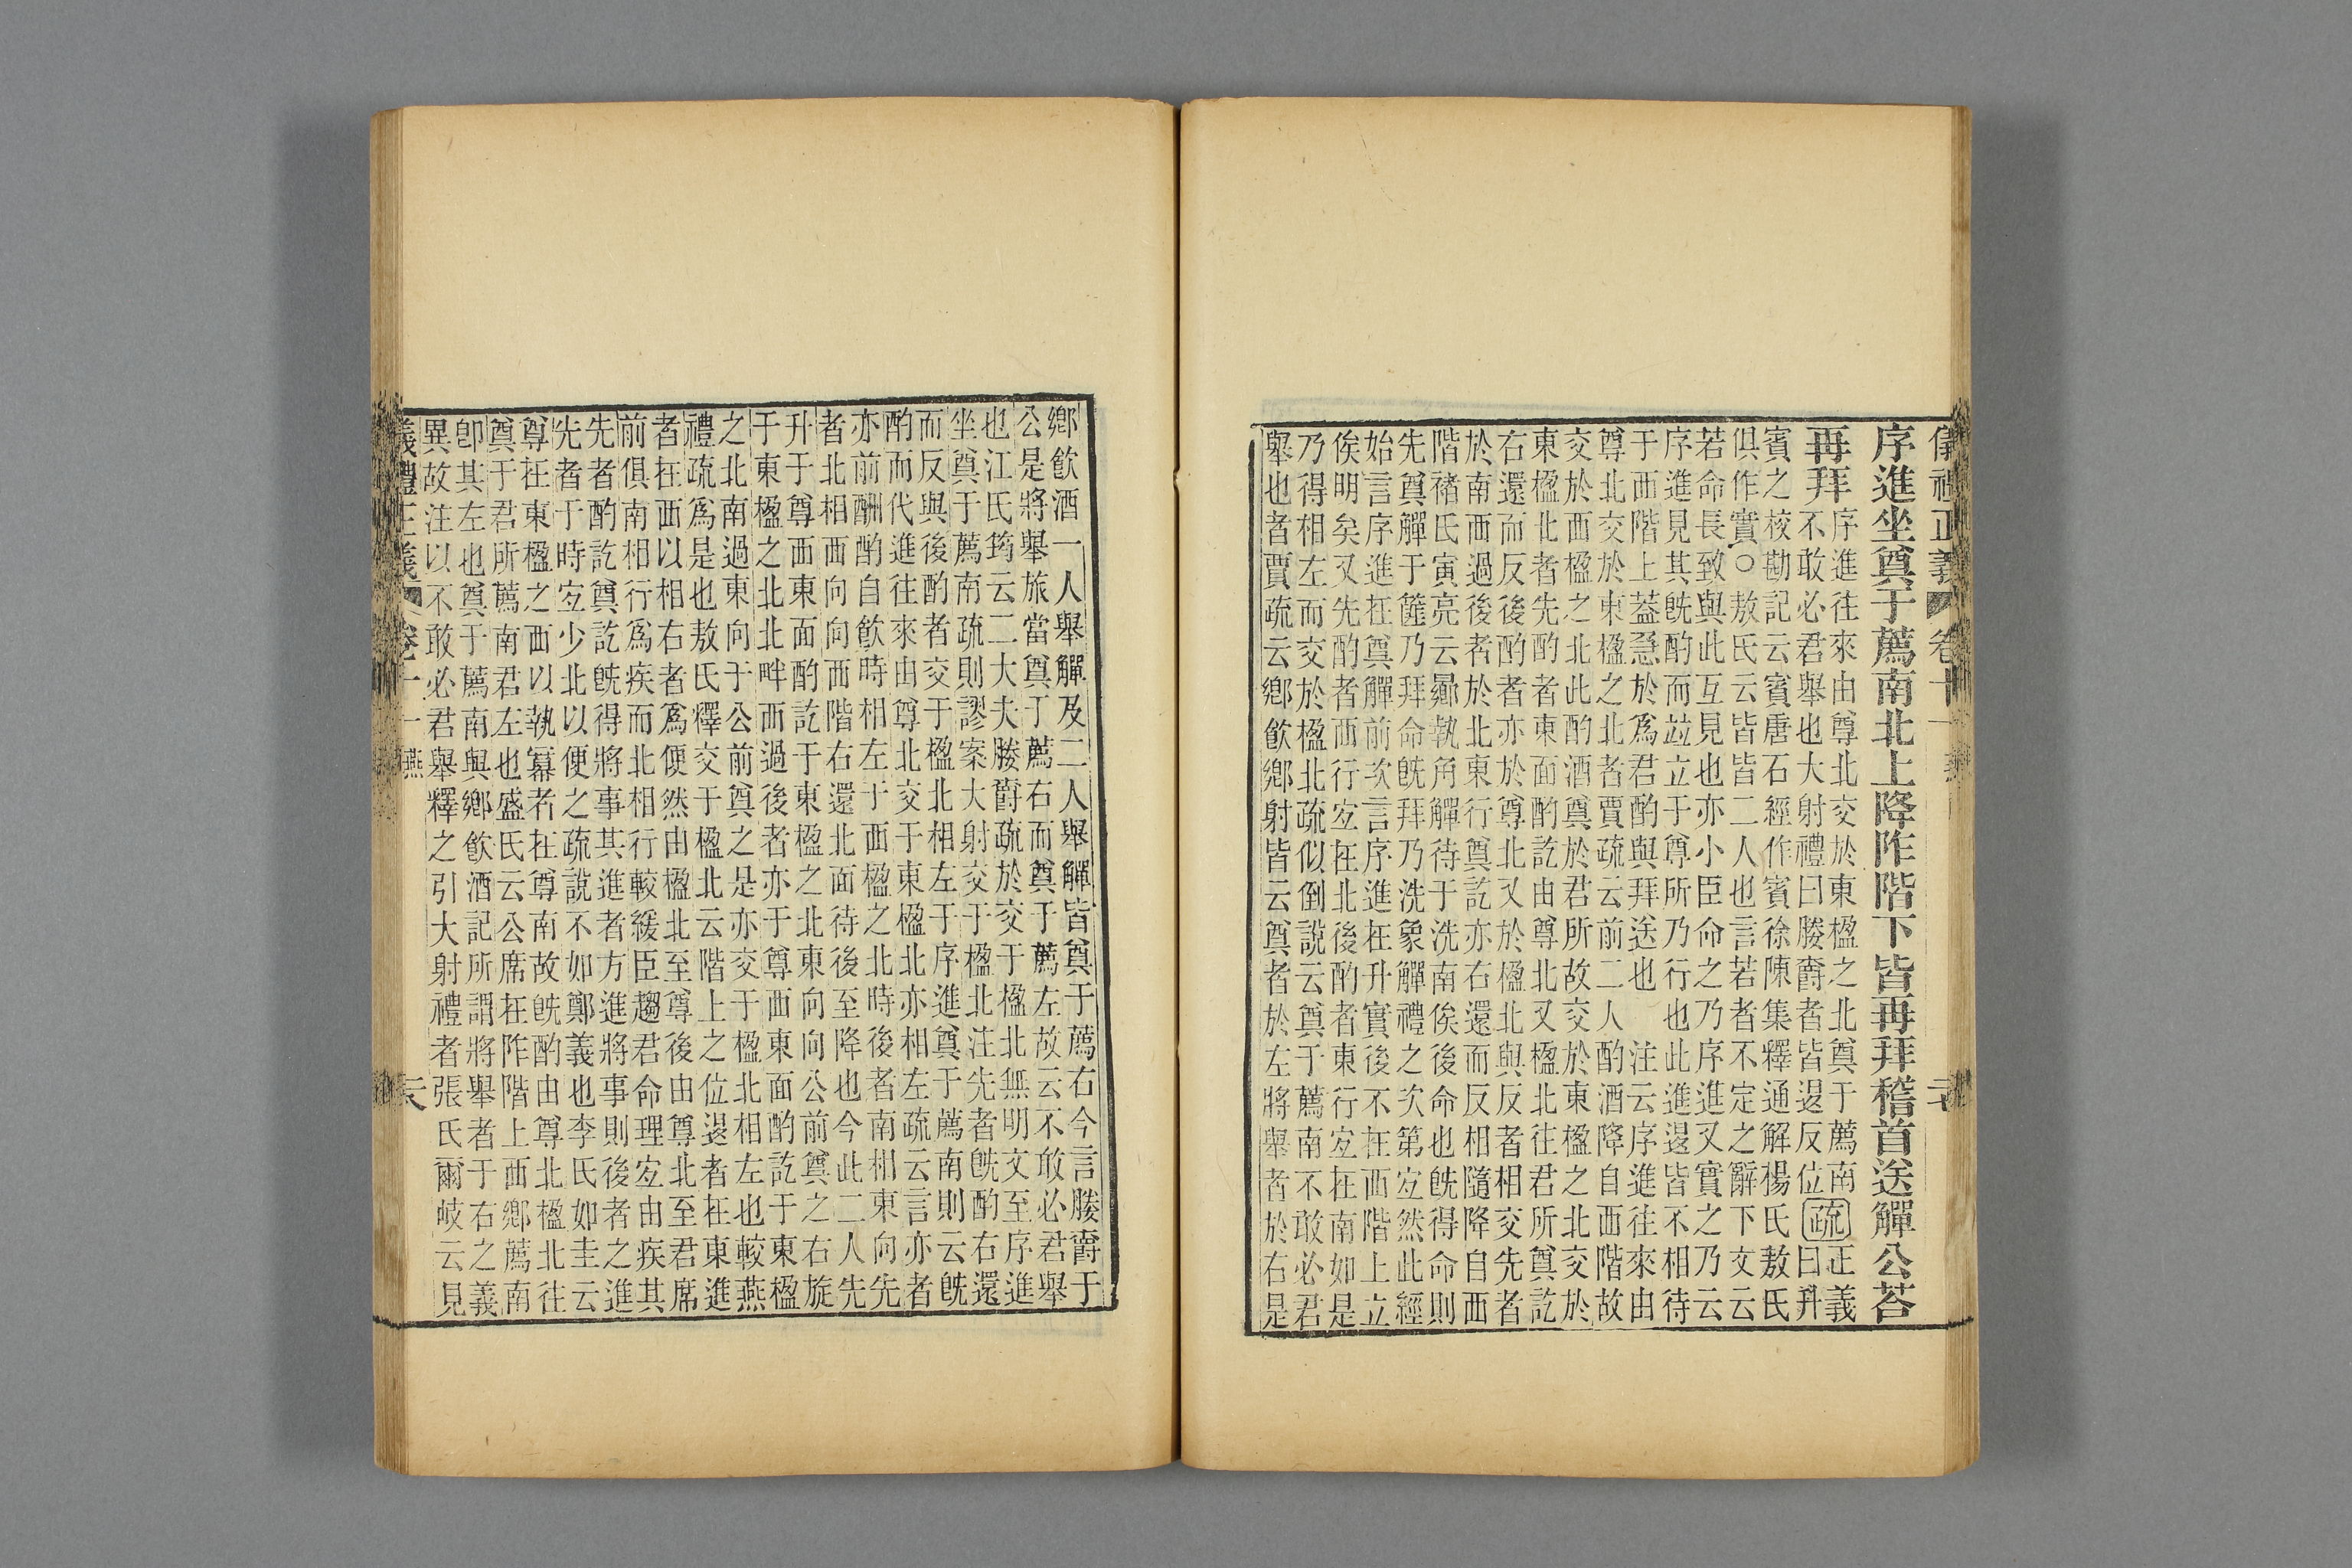 儀禮正義 卷十一
序進坐奠于薦南北上降阼階下皆再拜稽首送觶公荅
再拜
序進往來由尊北交於東楹之北奠于薦南
不敢必君舉也大射禮曰媵爵者皆退反位
疏
正義
曰升
賓之校勘記云賓唐石經作賓徐陳集釋通解楊氏敖氏
俱作實○敖氏云皆皆二人也言若者不定之辭下文云
若命長致與此互見也亦小臣命之乃序進又實之乃云
序進見其旣酌而竝立于尊所乃行也此進退皆不相待
于西階上葢急於爲君酌與拜送也 注云序進往來由
尊北交於東楹之北者賈疏云前二人酌酒降自西階故
交於西楹之北此酌酒奠於君所故交於東楹之北交於
東楹北者先酌者東面酌訖由尊北又楹北往君所奠訖
右還而反後酌者亦於尊北又於楹北與反者相交先者
於南西過後者於北東行奠訖亦右還而反相隨降自西
階褚氏寅亮云曏執角觶待于洗南俟後命也旣得命則
先奠觶于篚乃拜命旣拜乃洗象觶禮之次第宐然此經
始言序進在奠觶前次言序進在升實後不在西階上立
俟明矣又先酌者西行宐在北後酌者東行宐在南如是
乃得相左而交於楹北疏似倒說云奠于薦南不敢必君
舉也者賈疏云鄉飲鄉射皆云奠者於左將舉者於右是
鄉飲酒一人舉觶及二人舉觶皆奠于薦右今言媵爵于
公是將舉旅當奠于薦右而奠于薦左故云不敢必君舉
也江氏筠云二大夫媵爵疏於交于楹北無明文至序進
坐奠于薦南疏則謬案大射交于楹北注先者旣酌右還
而反與後酌者交于楹北相左于序進奠于薦南則云旣
酌而代進往來由尊北交于東楹北亦相左疏云言亦者
亦前酬酌自飲時相左于西楹之北時後者南相東向先
者北相西向向西階右還北面待後至降也今此二人先
升于尊西東面酌訖于東楹之北東向向公前奠之右旋
于東楹之北北畔西過後者亦于尊西東面酌訖于東楹
之北南過東向于公前奠之是亦交于楹北相左也較燕
禮疏爲是也敖氏釋交于楹北云階上之位退者在東進
者在西以相右者爲便然由楹北至尊後由尊北至君席
前俱南相行爲疾而北相行較緩臣趨君命理宐由疾其
先者酌訖奠訖旣得將事其進者方進將事則後者之進
先者于時宐少北以便之疏說不如鄭義也李氏如圭云
尊在東楹之西以執冪者在尊南故旣酌由尊北楹北往
奠于君所薦南君左也盛氏云公席在阼階上西鄉薦南
卽其左也奠于薦南與鄉飲酒記所謂將舉者于右之義
異故注以不敢必君舉釋之引大射禮者張氏爾岐云見
儀禮正義 卷十一 燕